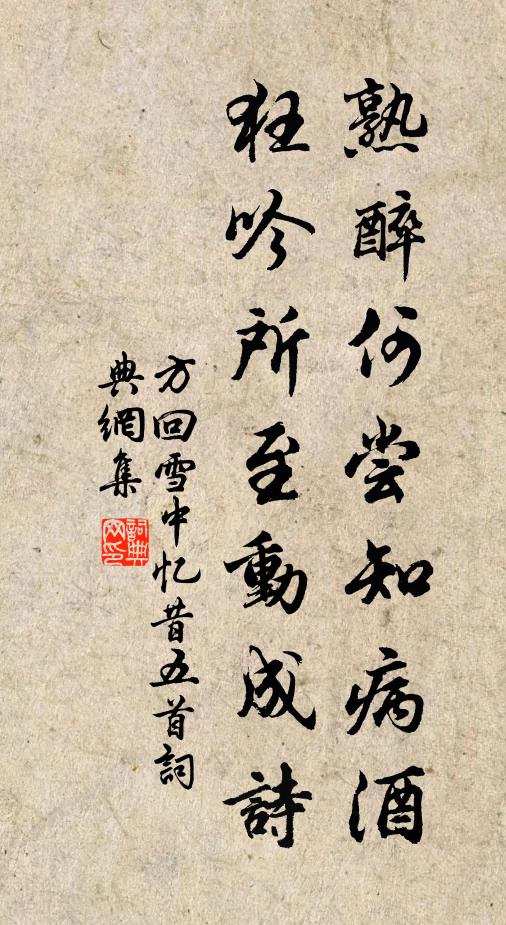 熟醉何尝知病酒
狂吟所至動成詩
方回雪中忆昔五首詞
典網集
詞典
网印